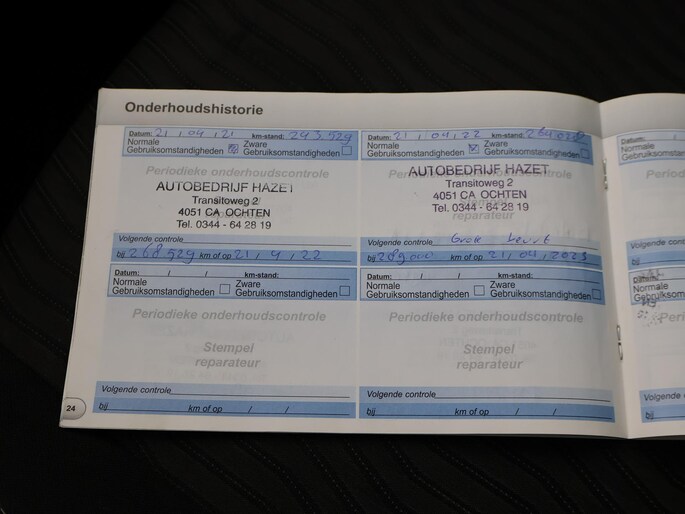 Onderhoudshistorie
Datum: 21 / 04 / 21 km-stand: 243.529
Normale Gebruiksomstandigheden Zware Gebruiksomstandigheden
Periodieke onderhoudscontrole
AUTOBEDRIJF HAZET
Transitoweg 2
4051 CA OCHTEN
Tel. 0344 - 64 28 19
Volgende controle
bij 268.529 km of op 21 / 4 / 22
Datum: 21 / 04 / 22 km-stand:
Normale Gebruiksomstandigheden Zware Gebruiksomstandigheden
AUTOBEDRIJF HAZET
Transitoweg 2
4051 CA OCHTEN
Tel. 0344 - 64 28 19
reparateur
Volgende controle Grote beurt
bij 289.000 km of op 21 / 04 / 2023
Datum: / / km-stand:
Normale Gebruiksomstandigheden Zware Gebruiksomstandigheden
Periodieke onderhoudscontrole
Stempel
reparateur
Volgende controle
bij km of op / /
Datum: / / km-stand:
Normale Gebruiksomstandigheden Zware Gebruiksomstandigheden
Periodieke onderhoudscontrole
Stempel
reparateur
Volgende controle
bij km of op / /
24